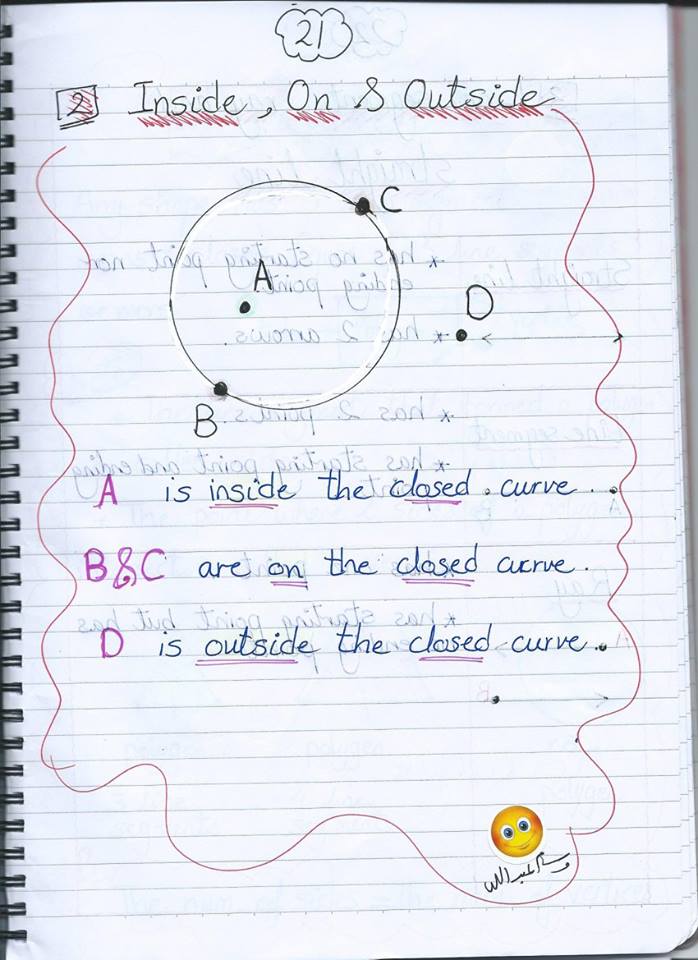 21
2 Inside, On & Outside
C
A
D
B
A is inside the closed curve.
B&C are on the closed curve.
D is outside the closed curve.